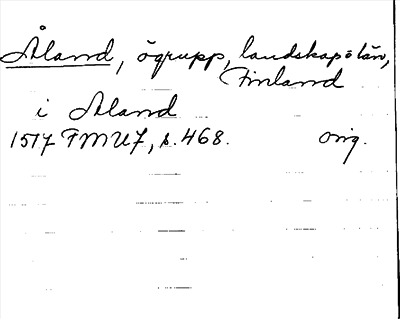 Åland, ögrupp, landskap o län,
Finland
i Aland
1517 FMU7, s. 468. orig.